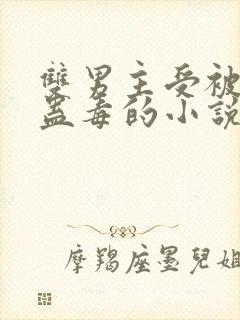 雙男主受被
蠱毒的小說
摩羯座墨兒姐